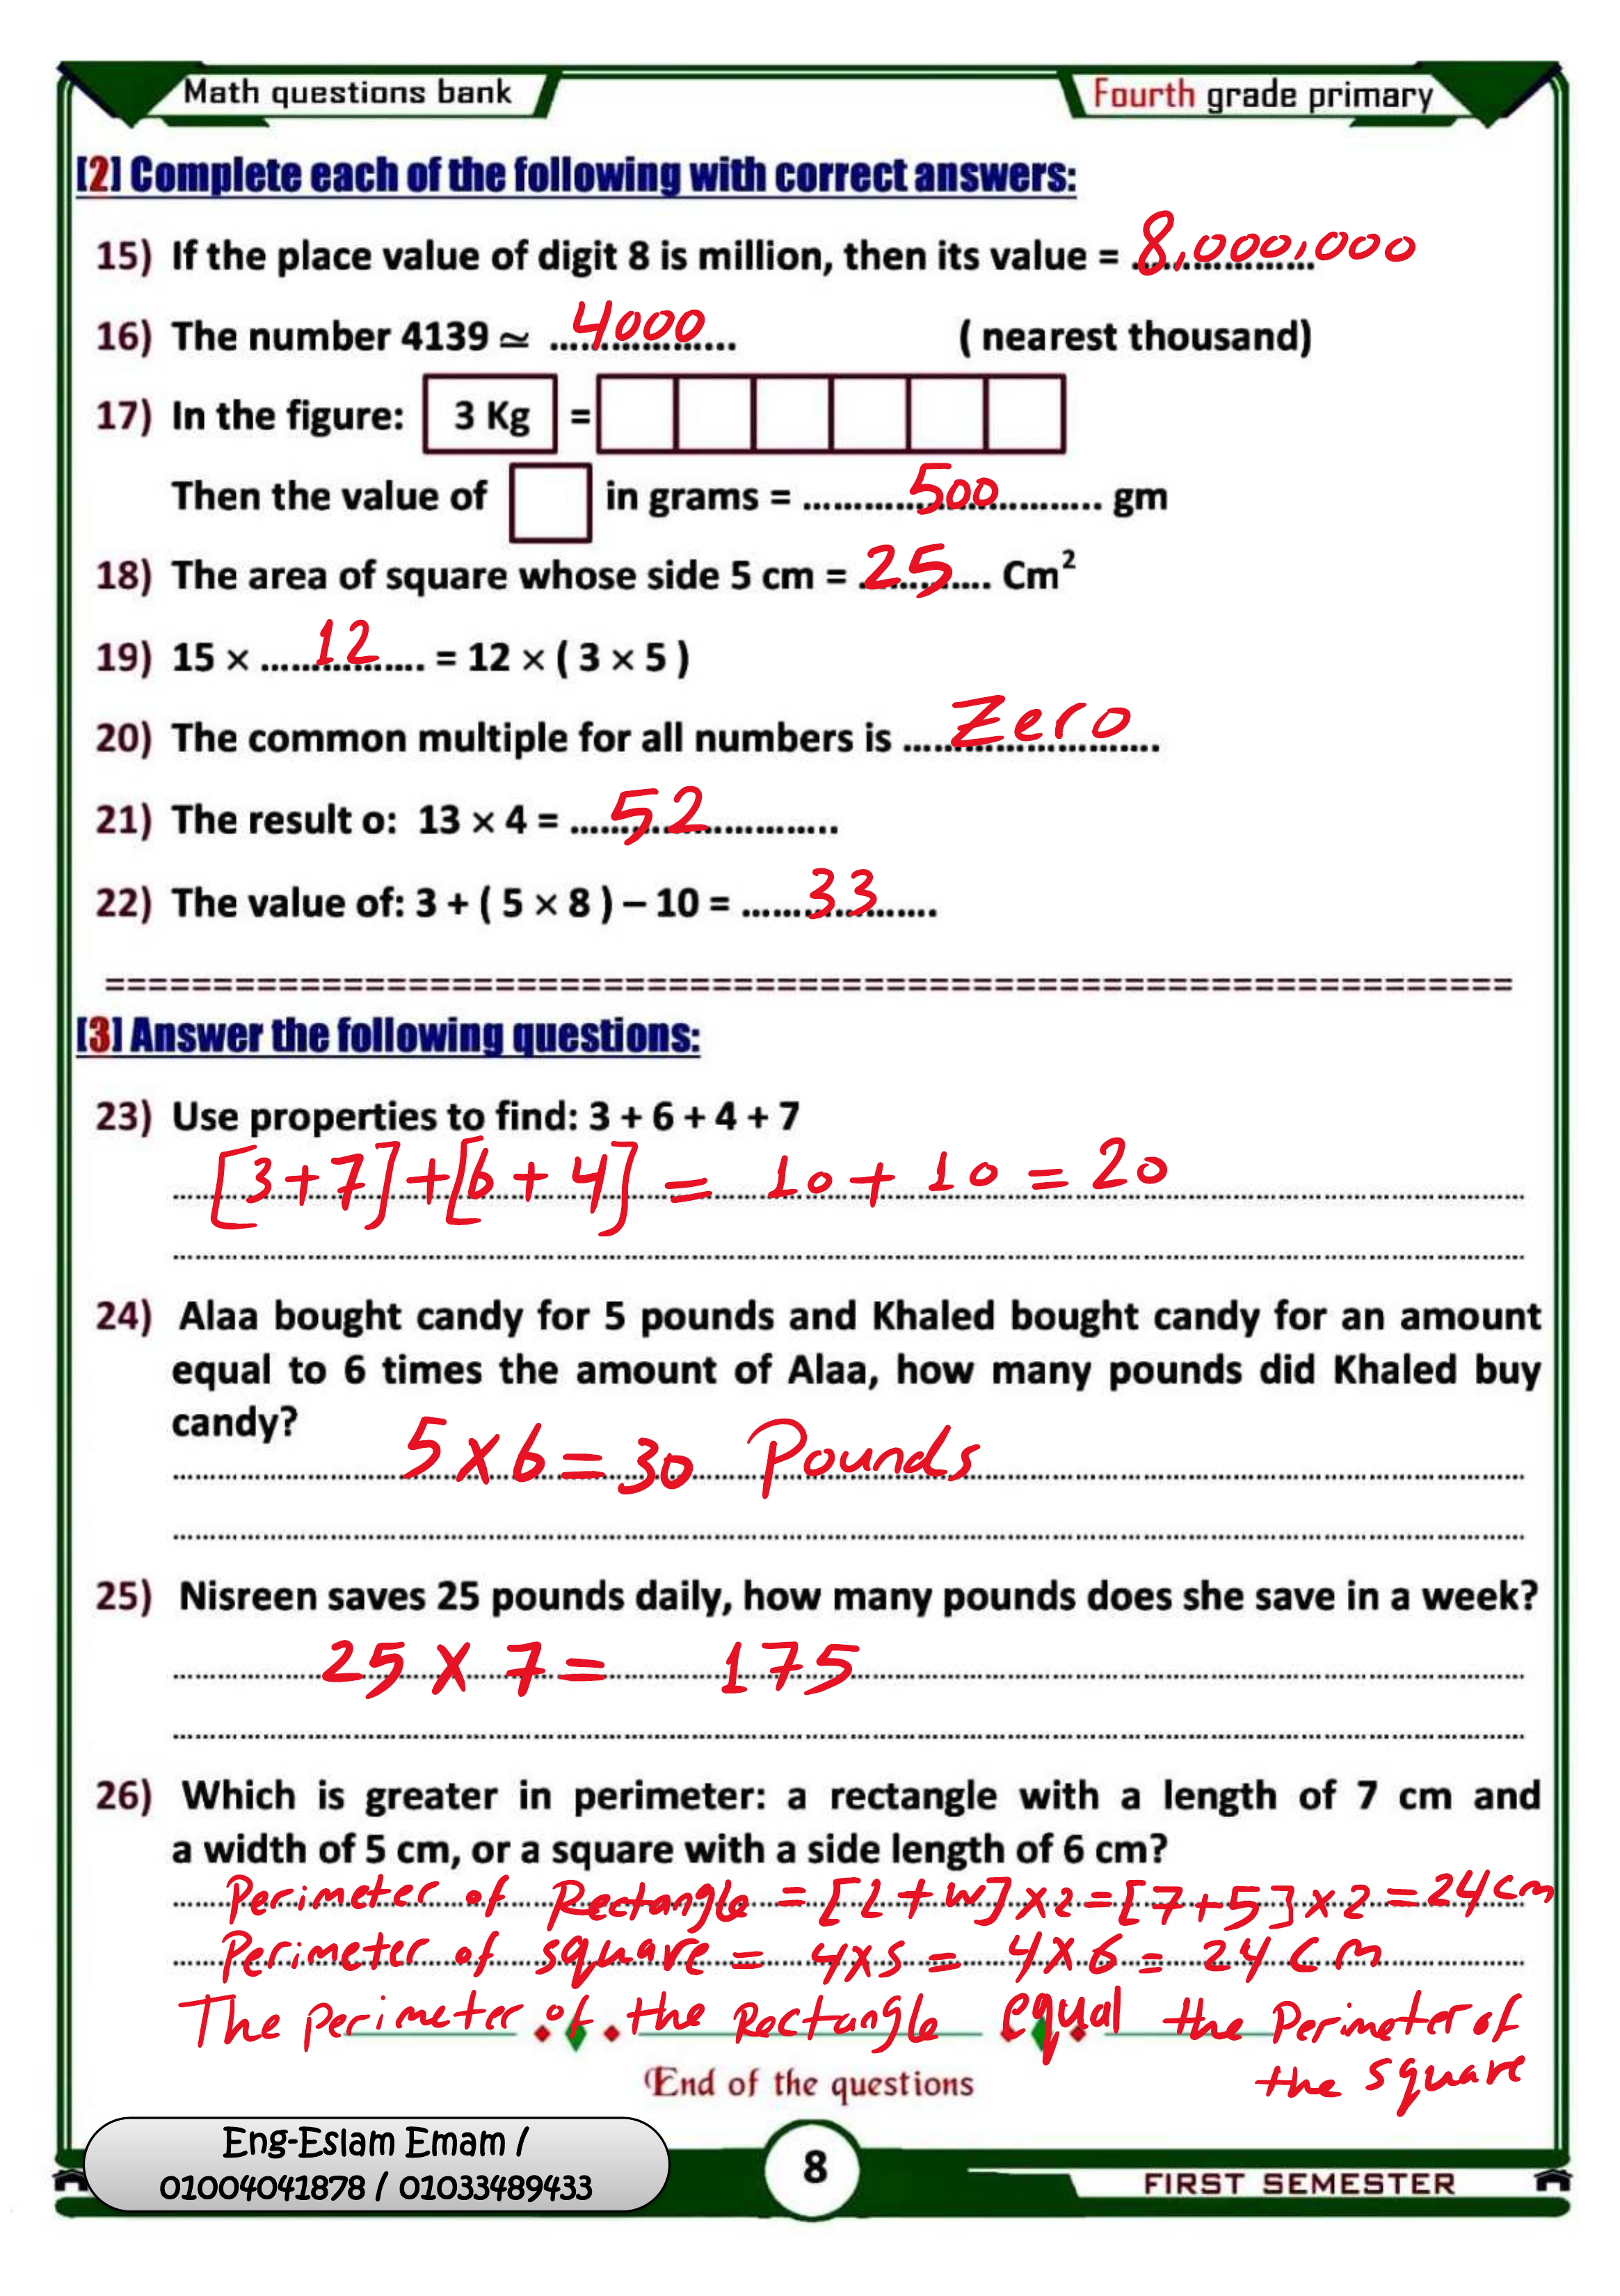 Math questions bank
Fourth grade primary
[2] Complete each of the following with correct answers:
15) If the place value of digit 8 is million, then its value = 8,000,000
16) The number 4139 ≃ 4000 ( nearest thousand)
17) In the figure: 3 Kg =
Then the value of in grams = 500 gm
18) The area of square whose side 5 cm = 25 Cm²
19) 15 × 12 = 12 × ( 3 × 5 )
20) The common multiple for all numbers is Zero
21) The result o: 13 × 4 = 52
22) The value of: 3 + ( 5 × 8 ) – 10 = 33
[3] Answer the following questions:
23) Use properties to find: 3 + 6 + 4 + 7
[3+7]+[6+4] = 10 + 10 = 20
24) Alaa bought candy for 5 pounds and Khaled bought candy for an amount
equal to 6 times the amount of Alaa, how many pounds did Khaled buy
candy?
5 × 6 = 30 Pounds
25) Nisreen saves 25 pounds daily, how many pounds does she save in a week?
25 × 7 = 175
26) Which is greater in perimeter: a rectangle with a length of 7 cm and
a width of 5 cm, or a square with a side length of 6 cm?
Perimeter of Rectangle = [L+W]×2=[7+5]×2=24cm
Perimeter of square = 4×s = 4×6 = 24 cm
The perimeter of the Rectangle equal the Perimeter of
the square
End of the questions
Eng-Eslam Emam /
01004041878 / 01033489433
8
FIRST SEMESTER